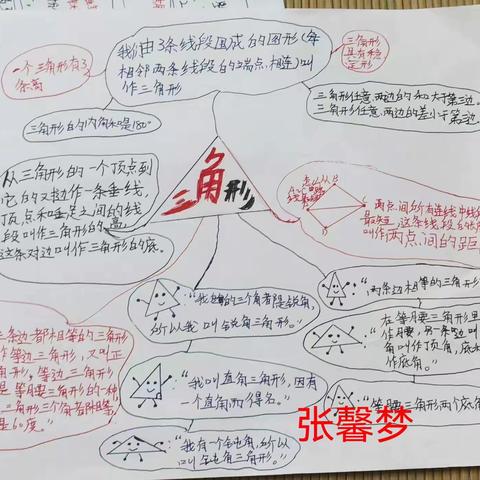 一个三角形有3
条高
我们由3条线段围成的图形(每
相邻两条线段的端点相连)叫
作三角形
三角形
具有稳
定性
三角形任意两边的和大于第三边。
三角形任意两边的差小于第三边。
三角形的内角和是180°
从三角形的一个顶点到
它的对边作一条垂线,
顶点和垂足之间的线
段叫作三角形的高,
这条对边叫作三角形的底。
三角形
两点间所有连线中线
最短,这条线段的长
叫作两点间的距
"我的三个角都是锐角,
所以我叫锐角三角形。"
"两条边相等的三角形
在等腰三角形里
角叫作顶角,
作底角。"
三条边都相等的三角形
作等边三角形,又叫正
角形,等边三角形
是等腰三角形的一种
三角形三个角都相等
是60度。
"我叫直角三角形,因有
一个直角而得名。"
"等腰三角形两个底角
"我有一个钝角,所以
叫钝角三角形。"
张馨梦